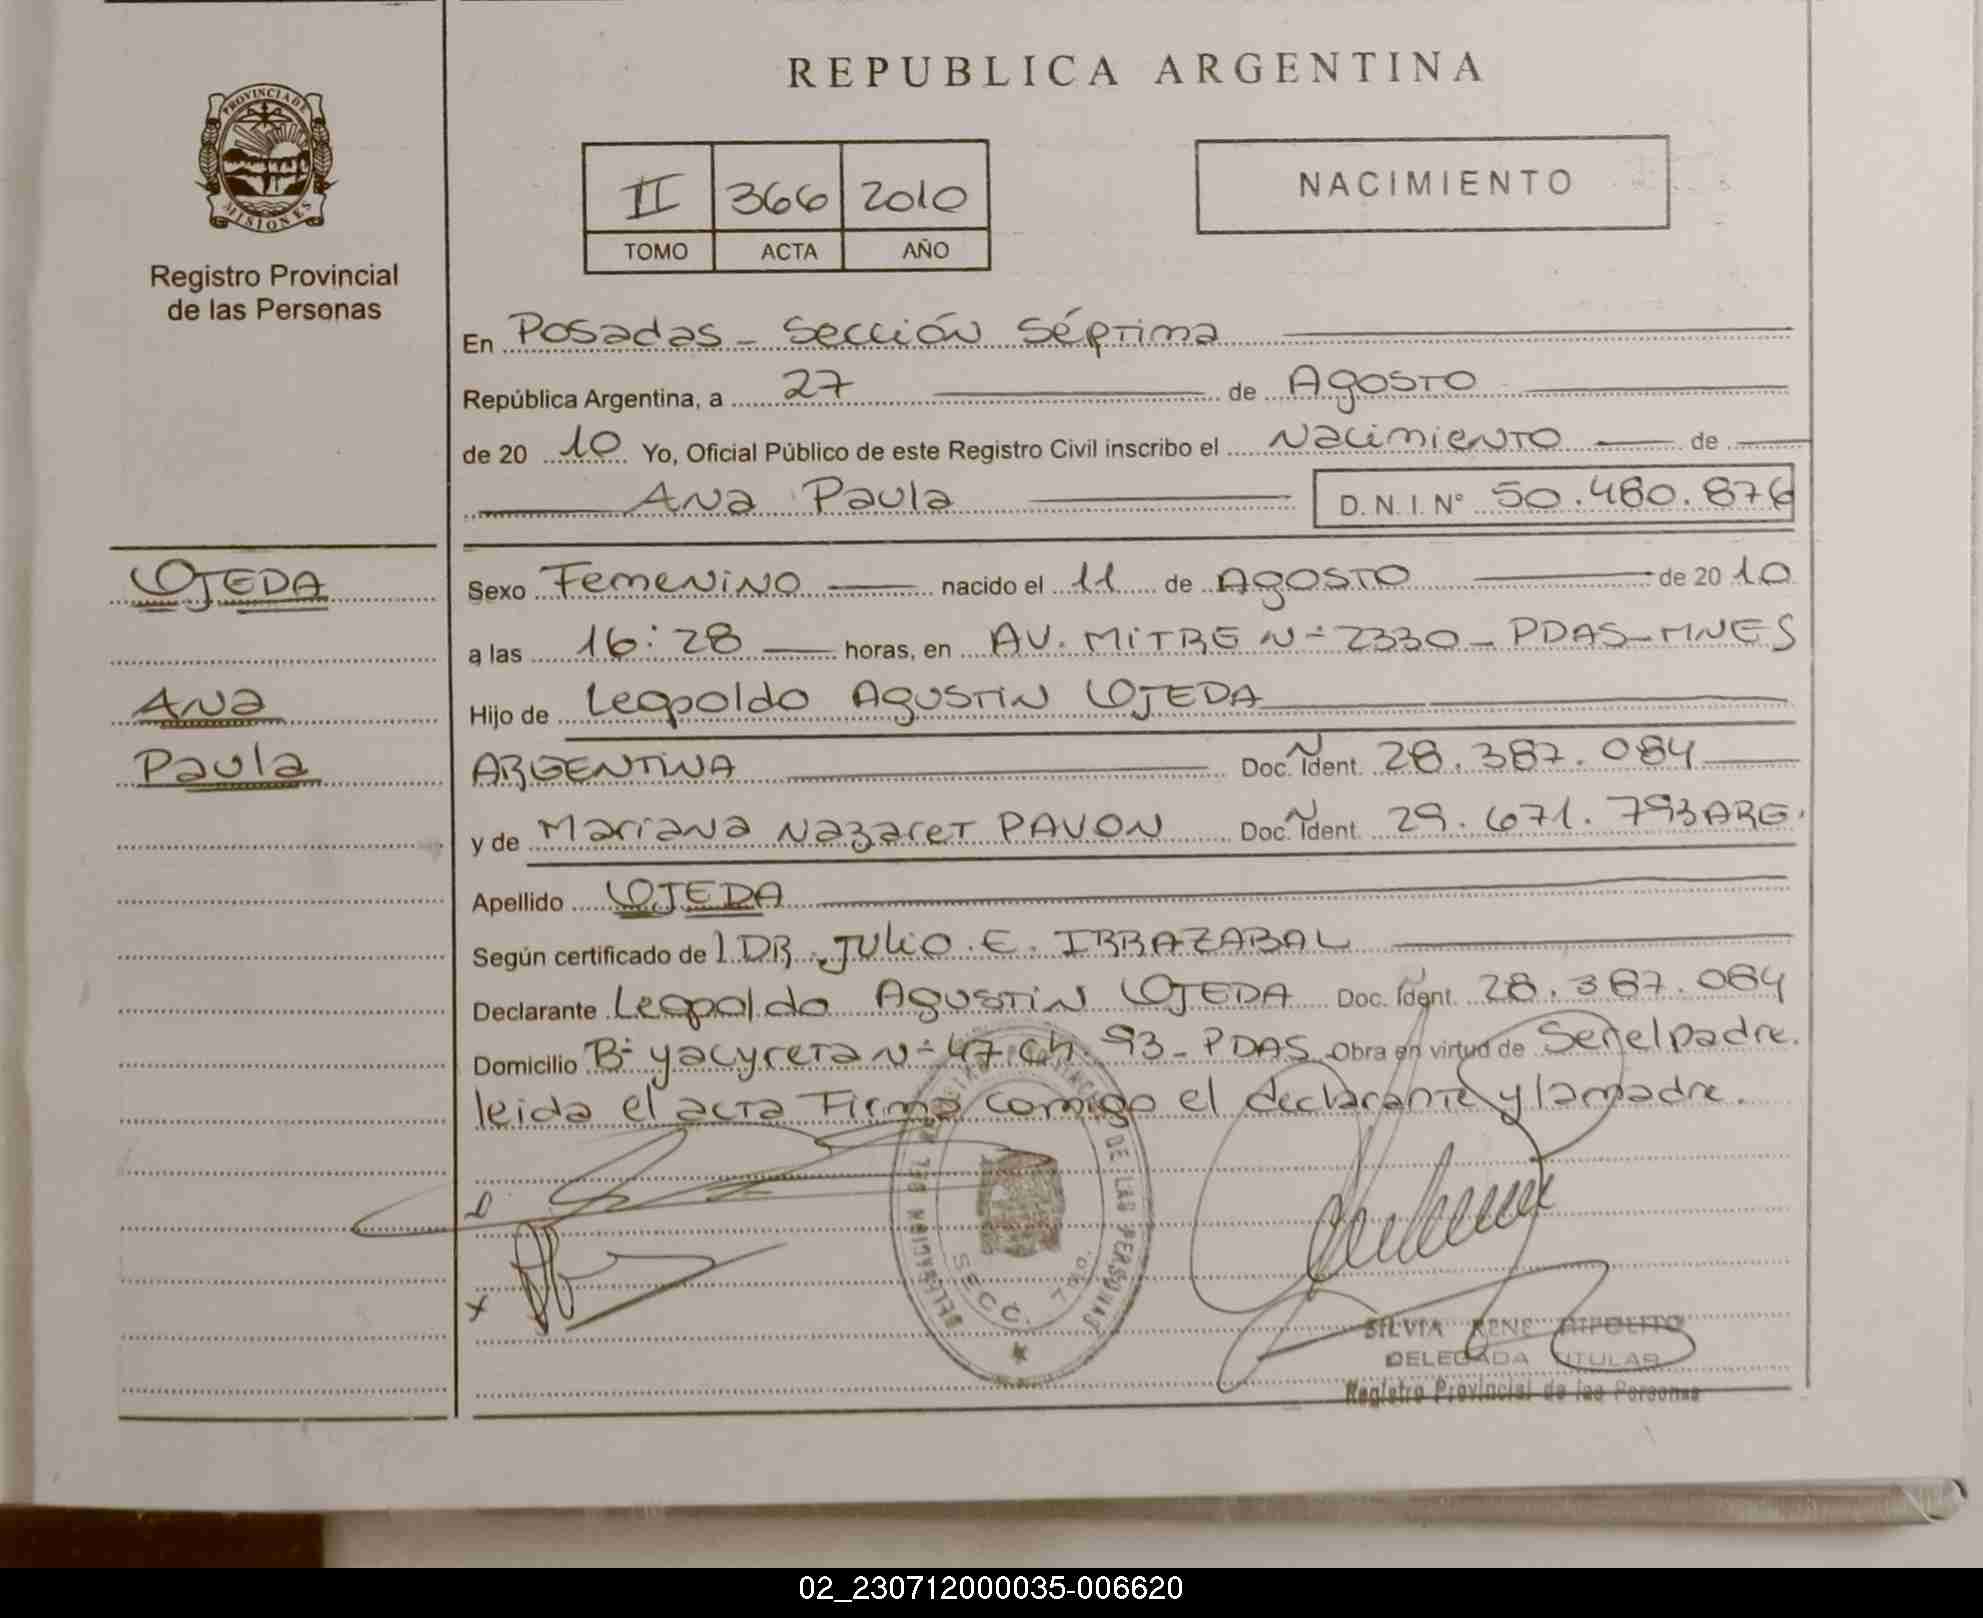 REPUBLICA ARGENTINA
PROVINCIA DE
MISIONES
Registro Provincial
de las Personas
II 366 2010
TOMO ACTA AÑO
NACIMIENTO
En Posadas - Sección Séptima
República Argentina, a 27 de Agosto
de 20 10 Yo, Oficial Público de este Registro Civil inscribo el Nacimiento de
Ana Paula D.N.I. N° 50.480.876
OJEDA
Ana
Paula
Sexo Femenino nacido el 11 de Agosto de 20 10
a las 16:28 horas, en AV. MITRE N° 2330 - PDAS - MNES
Hijo de Leopoldo Agustin OJEDA
ARGENTINA Doc. Ident. N 28.387.084
y de Mariana Nazaret PAVON Doc. Ident. N 29.671.793 ARG.
Apellido OJEDA
Según certificado de l DR. JULIO. E. IRRAZABAL
Declarante Leopoldo Agustin OJEDA Doc. Ident. N 28.387.084
Domicilio B° yacyreta N° 47 Ch. 93 - PDAS Obra en virtud de Ser el padre.
leida el acta Firma comigo el declarante y la madre.
DELEGACION DEL REGISTRO PROVINCIAL DE LAS PERSONAS
SECC. 7ma.
SILVIA RENE HIPOLITO
DELEGADA TITULAR
Registro Provincial de las Personas
02_230712000035-006620